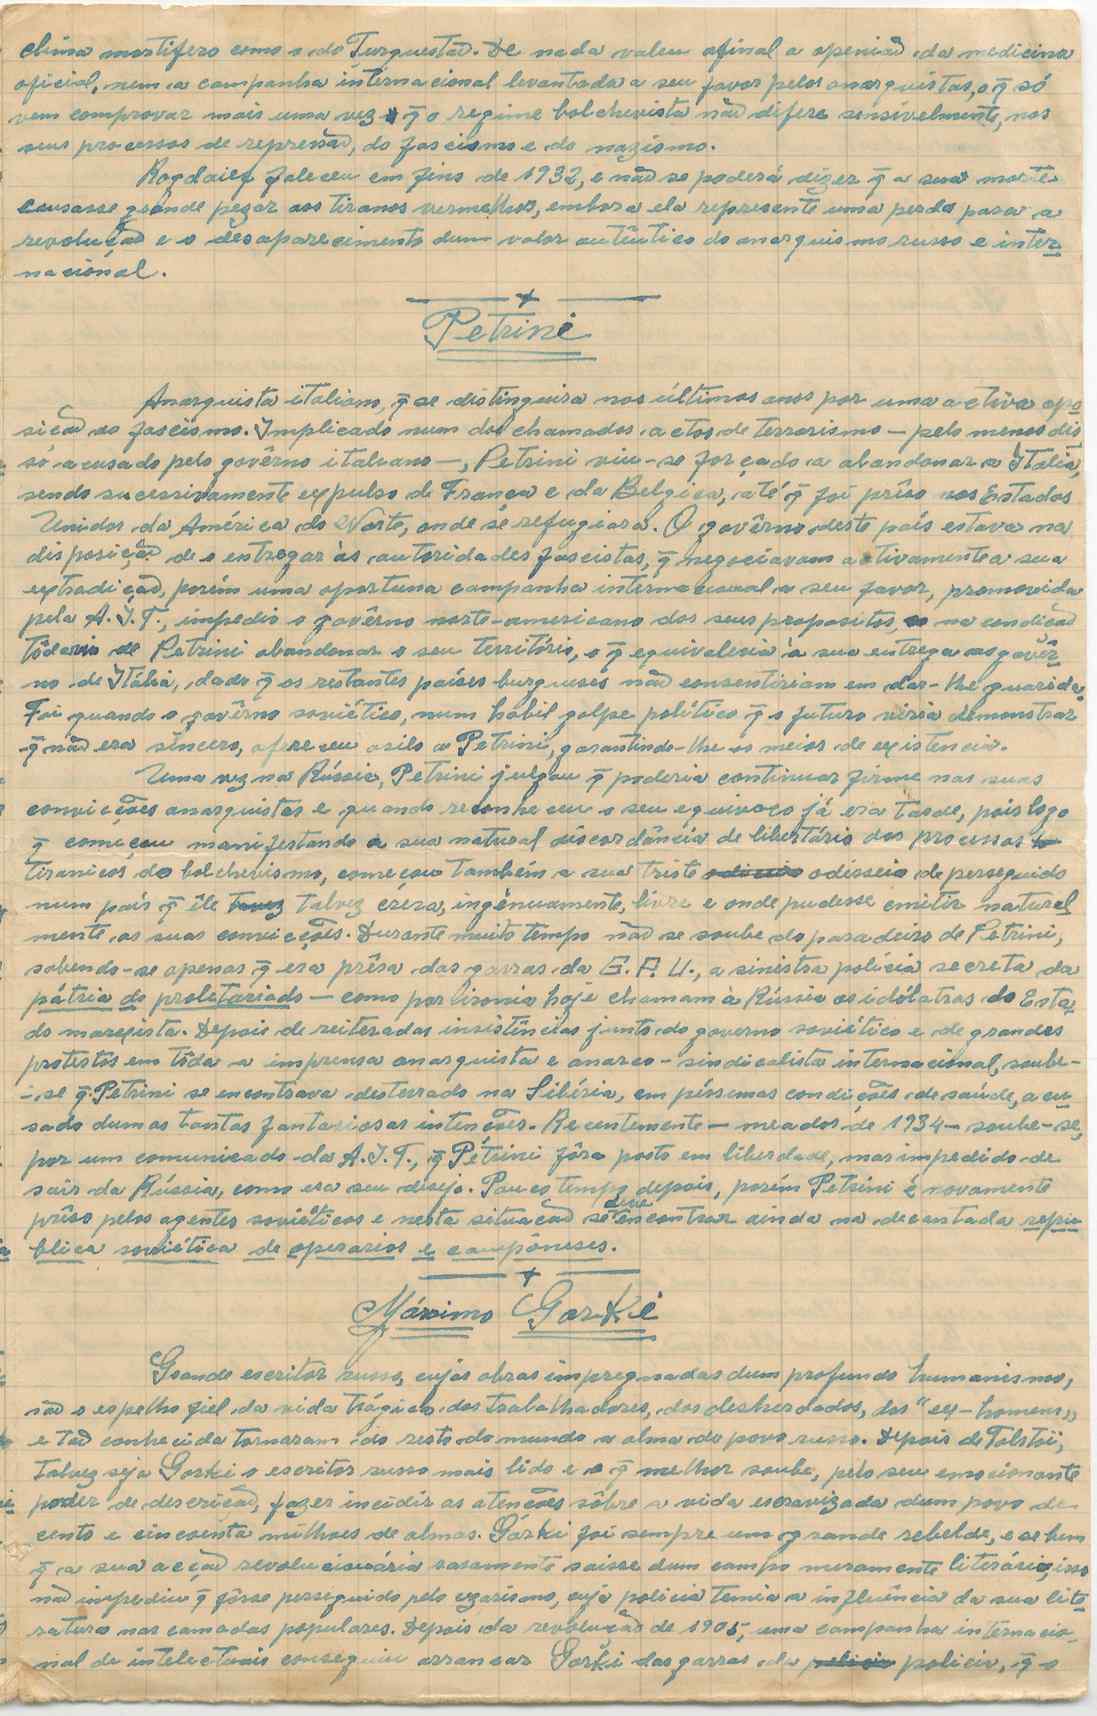 clima mortifero como o do Turquestão. De nada valeu afinal a openião da medicina
oficial, nem a campanha internacional levantada a seu favor pelos anarquistas, o q̃ só
vem comprovar mais uma vez q̃ o regime bolchevista não difere sensívelmente, nos
seus processos de repressão, do fascismo e do nazismo.
Rogdaieff faleceu em fins de 1932, e não se poderá dizer q̃ a sua morte
causasse grande pezar aos tiranos vermelhos, embora ela represente uma perda para a
revolução e o desaparecimento dum valor autêntico do anarquismo russo e inter-
nacional.
Petrini
Anarquista italiano, q̃ se distinguira nos últimos anos por uma activa opo-
sição ao fascismo. Implicado num dos chamados actos de terrorismo — pelo menos dis-
so acusado pelo govêrno italiano —, Petrini viu-se forçado a abandonar a Itália,
sendo sucessivamente expulso de França e da Belgica, até q̃ foi prêso nos Estados
Unidos da América do Norte, onde se refugiara. O govêrno deste país estava na
disposição de o entregar às autoridades fascistas, q̃ negociavam activamente a sua
extradição, porém uma oportuna campanha internacional a seu favor, promovida
pela A.I.T., impediu o govêrno norte-americano dos seus propositos, na condição
tôdavia de Petrini abandonar o seu território, o q̃ equivaleria à sua entrega ao govêr-
no de Itália, dado q̃ os restantes países burgueses não consentiriam em dar-lhe guarida.
Foi quando o govêrno soviético, num hábil golpe político q̃ o futuro viria demonstrar
q̃ não era sincero, ofereceu asilo a Petrini, garantindo-lhe os meios de existencia.
Uma vez na Rússia, Petrini julgou q̃ poderia continuar firme nas suas
convicções anarquistas e quando reconheceu o seu equivoco já era tarde, pois logo
q̃ começou manifestando a sua natural discordância de libertário dos processos
tiranicos do bolchevismo, começou também a sua triste odisseia de perseguido
num país q̃ êle talvez crêra, ingénuamente, livre e onde pudesse emitir natural
mente as suas convicções. Durante muito tempo não se soube do paradeiro de Petrini,
sabendo-se apenas q̃ era prêsa das garras da G.P.U., a sinistra polícia secreta da
pátria do proletariado — como por lironia hoje chamam à Rússia os idólatras do Esta-
do marxista. Depois de reiteradas insistências junto do governo soviético e de grandes
protestos em tôda a imprensa anarquista e anarco-sindicalista internacional, soube-
-se q̃ Petrini se encontrava desterrado na Sibéria, em péssimas condições de saúde, acu-
sado dumas tantas fantasiosas intenções. Recentemente — meados de 1934 — soube-se,
por um comunicado da A.I.T., q̃ Petrini fôra posto em liberdade, mas impedido de
sair da Rússia, como era seu desejo. Pouco tempo depois, porém Petrini é novamente
prêso pelos agentes soviéticos e nesta situação se deve encontrar ainda na decantada repu-
blica soviética de operarios e camponeses.
Máximo Gorki
Grande escritor russo, cujas obras impregnadas dum profundo humanismo,
são o espelho fiel da vida trágica dos trabalhadores, dos desherdados, dos "ex-homens"
e tão conhecida tornaram do resto do mundo a alma do povo russo. Depois de Tolstoi,
talvez seja Gorki o escritor russo mais lido e o q̃ melhor soube, pelo seu emocionante
poder de descrição, fazer incidir as atenções sôbre a vida escravizada dum povo de
cento e cincoenta milhoes de almas. Górki foi sempre um grande rebelde, e se bem
q̃ a sua acção revolucionária raramente saisse dum campo meramente literário, isso
não impediu q̃ fôsse perseguido pelo czarismo, cuja policia temia a influência da sua lite-
ratura nas camadas populares. Depois da revolução de 1905, uma campanha internacio-
nal de intelectuais conseguiu arrancar Gorki das garras da policia, q̃ o